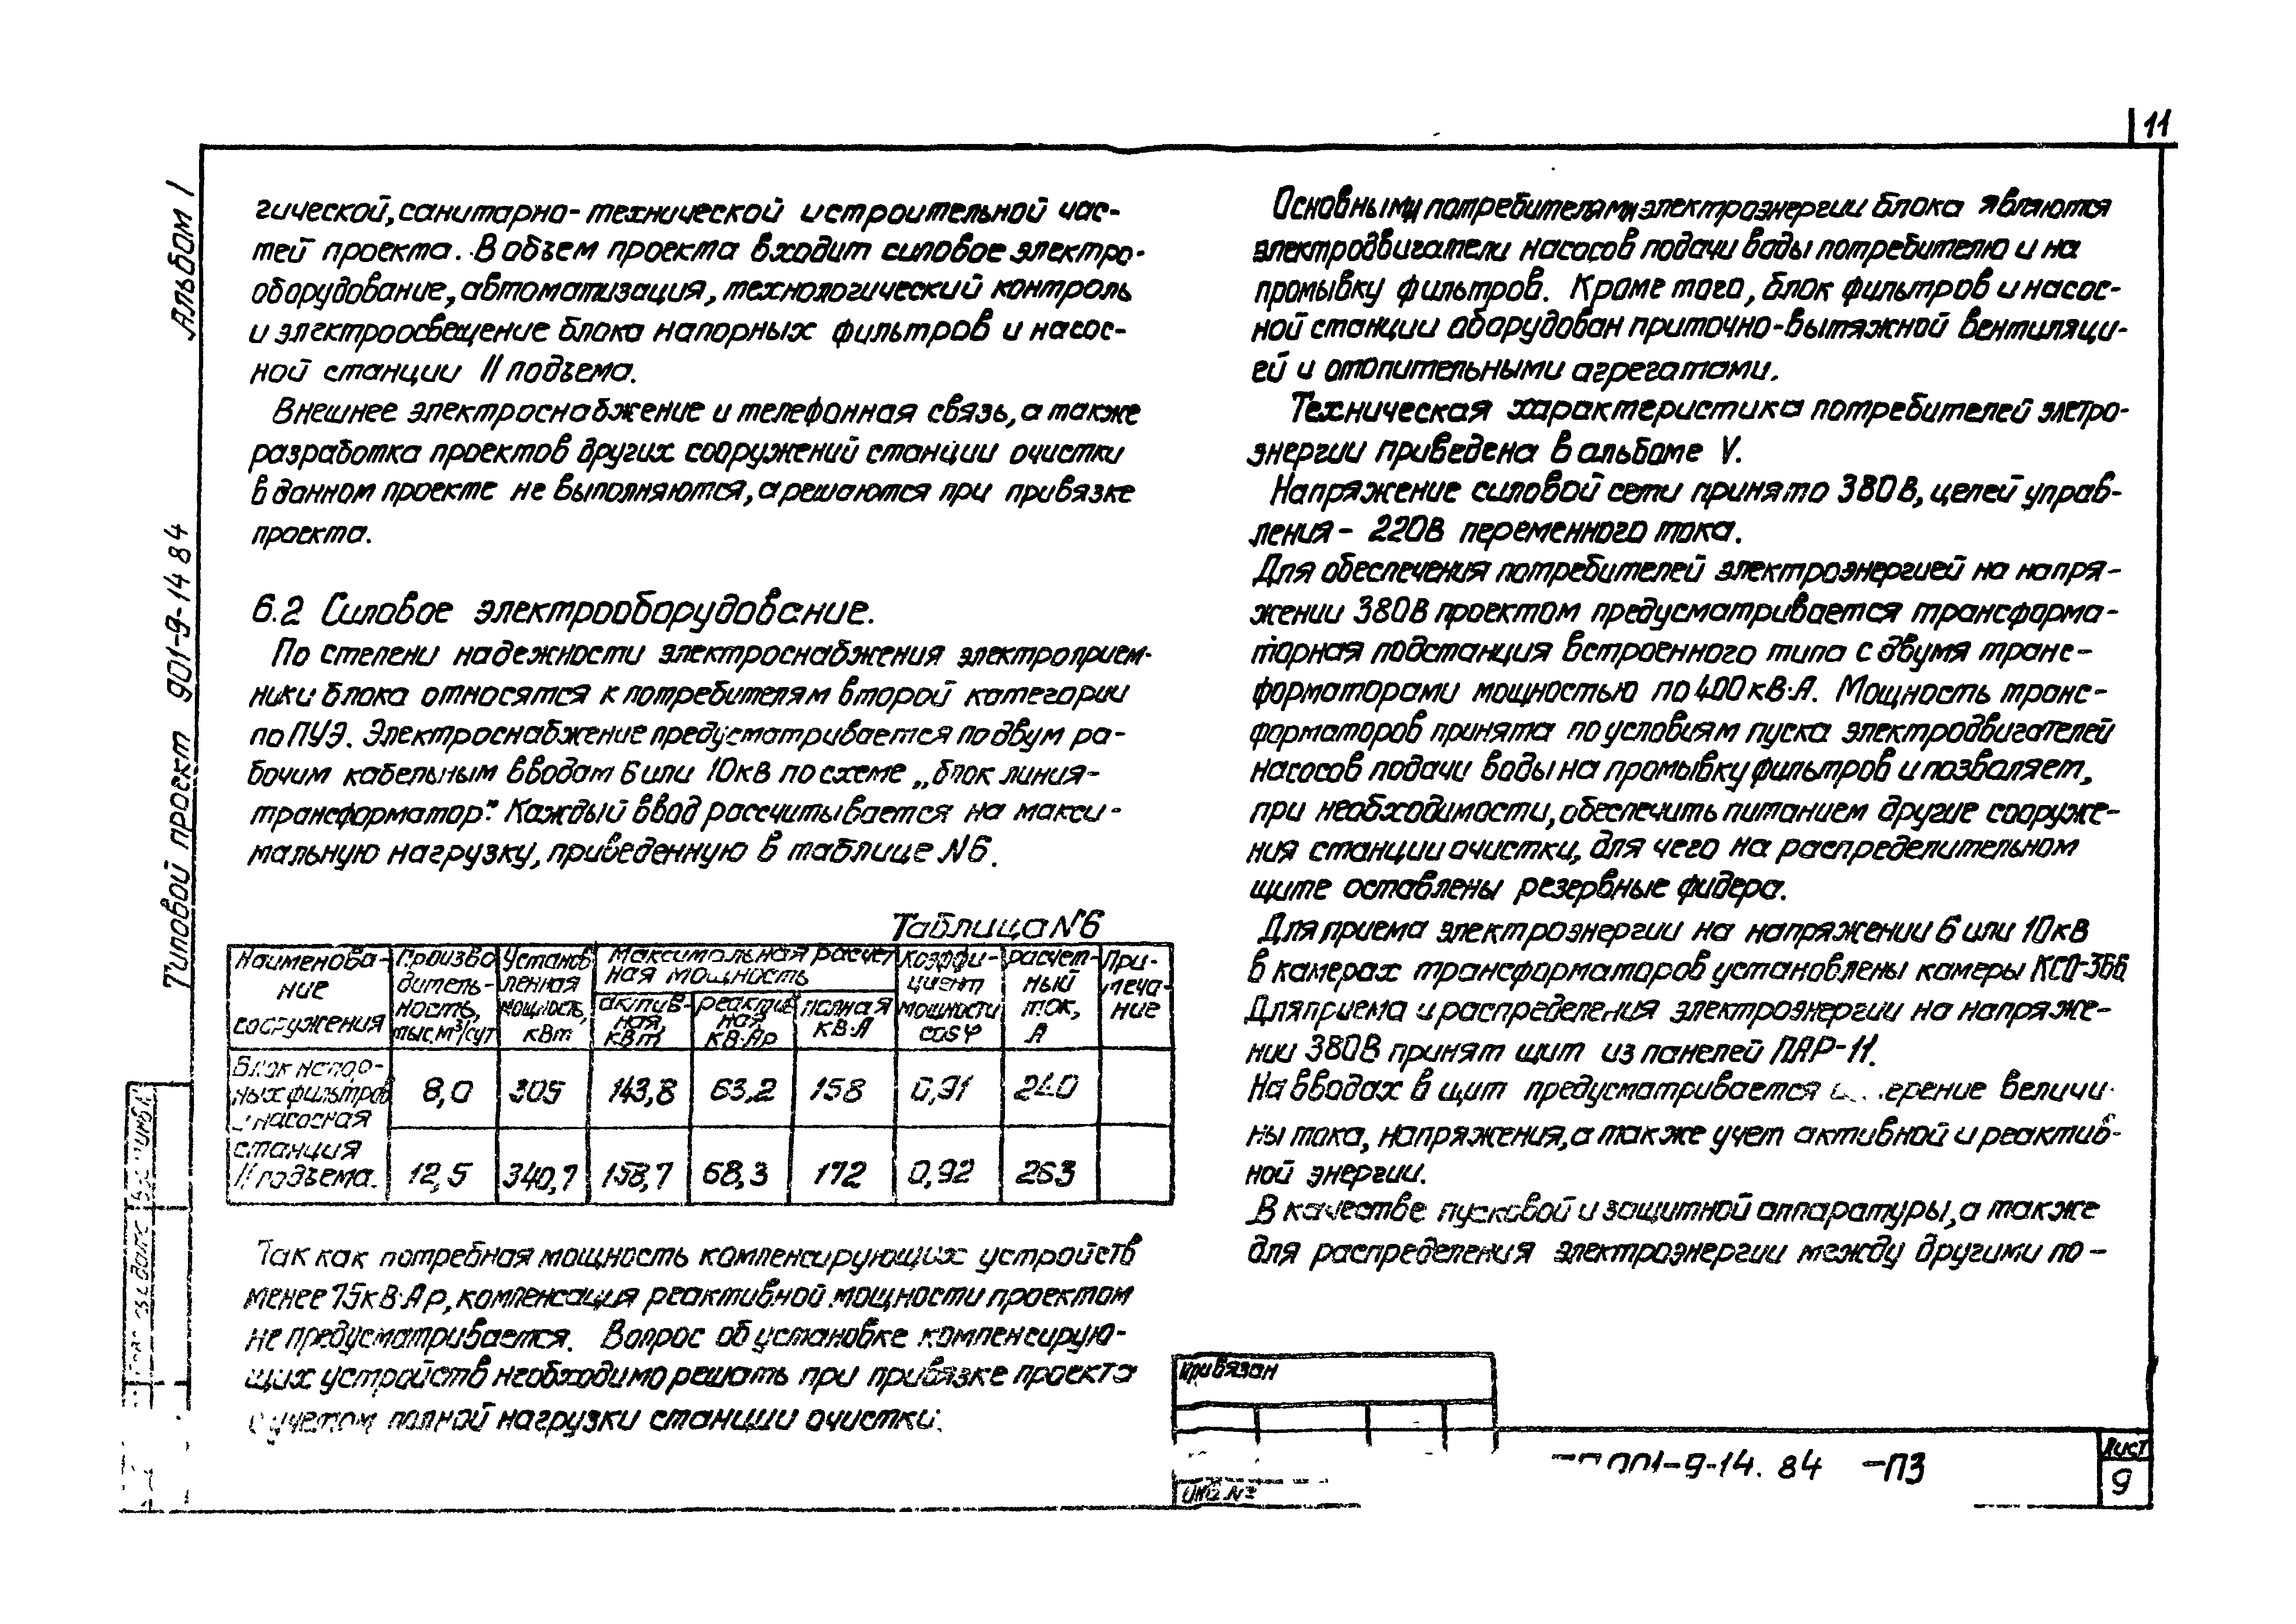 11
Альбом I
Типовой проект 901-9-14 84
гической, санитарно-технической и строительной час-
тей проекта. В объем проекта входит силовое электро-
оборудование, автоматизация, технологический контроль
и электроосвещение блока напорных фильтров и насос-
ной станции II подъема.
Внешнее электроснабжение и телефонная связь, а также
разработка проектов других сооружений станции очистки
в данном проекте не выполняются, а решаются при привязке
проекта.
6.2 Силовое электрооборудование.
По степени надежности электроснабжения электроприем-
ники блока относятся к потребителям второй категории
по ПУЭ. Электроснабжение предусматривается по двум ра-
бочим кабельным вводам 6 или 10кВ по схеме „блок линия-
трансформатор". Каждый ввод рассчитывается на макси-
мальную нагрузку, приведенную в таблице №6.
Таблица №6
Наименова-ние сооружения | Произво дитель-ность, тыс.м³/сут | Установ ленная мощность, кВт | Максимальная расчет ная мощность | Коэффи-циент мощности cosφ | расчет-ный ток, А | При-меча-ние
актив-ная, кВт | реактив ная кВ·Ар | полная кВ·А
Блок напор-ных фильтров и насосная станция II подъема. | 8,0 | 305 | 143,8 | 63,2 | 158 | 0,91 | 240
12,5 | 340,7 | 158,7 | 68,3 | 172 | 0,92 | 263
Так как потребная мощность компенсирующих устройств
менее 75кВ·Ар, компенсация реактивной мощности проектом
не предусматривается. Вопрос об установке компенсирую-
щих устройств необходимо решать при привязке проекта
с учетом полной нагрузки станции очистки.
Основными потребителями электроэнергии блока являются
электродвигатели насосов подачи воды потребителю и на
промывку фильтров. Кроме того, блок фильтров и насос-
ной станции оборудован приточно-вытяжной вентиляци-
ей и отопительными агрегатами.
Техническая характеристика потребителей элетро-
энергии приведена в альбоме V.
Напряжение силовой сети принято 380В, цепей управ-
ления - 220В переменного тока.
Для обеспечения потребителей электроэнергией на напря-
жении 380В проектом предусматривается трансформа-
торная подстанция встроенного типа с двумя транс-
форматорами мощностью по 400кВ·А. Мощность транс-
форматоров принята по условиям пуска электродвигателей
насосов подачи воды на промывку фильтров и позволяет,
при необходимости, обеспечить питанием другие сооруже-
ния станции очистки, для чего на распределительном
щите оставлены резервные фидера.
Для приема электроэнергии на напряжении 6 или 10кВ
в камерах трансформаторов установлены камеры КСО-366.
Для приема и распределения электроэнергии на напряже-
нии 380В принят щит из панелей ПАР-11.
На вводах в щит предусматривается величи-
ны тока, напряжения, а также учет активной и реактив-
ной энергии.
В качестве пусковой и защитной аппаратуры, а также
для распределения электроэнергии между другими по-
Привязан
Инв.№
901-9-14. 84 -ПЗ
Лист
9